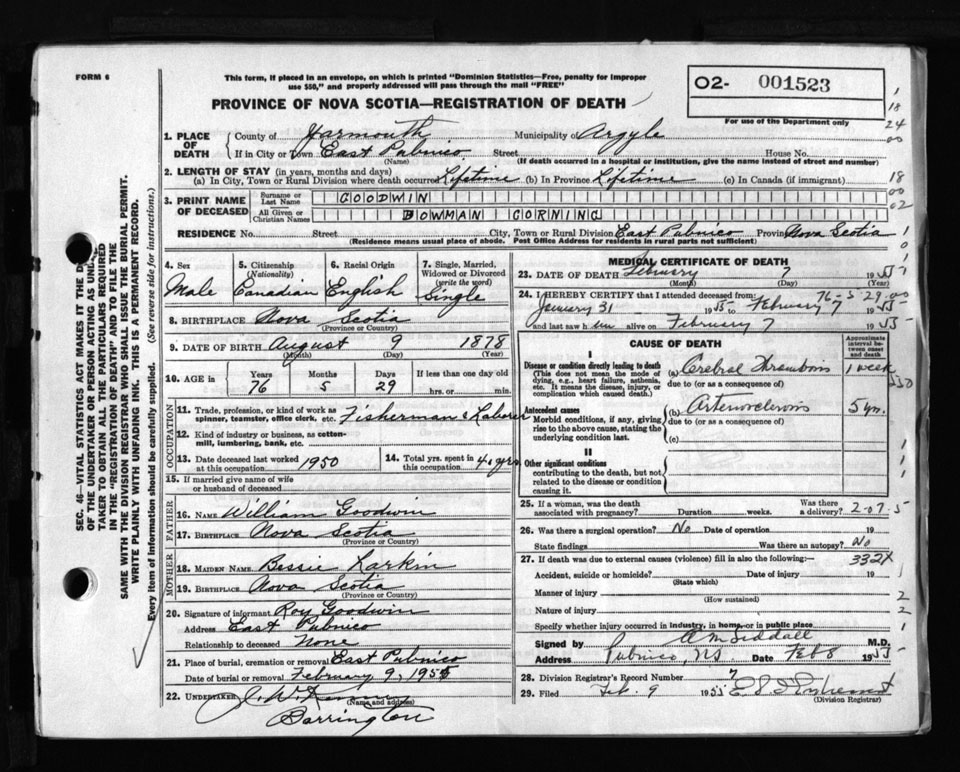 FORM 6
This form, if placed in an envelope, on which is printed "Dominion Statistics—Free, penalty for improper
use $50," and properly addressed will pass through the mail "FREE"
02- 001523
For use of the Department only
PROVINCE OF NOVA SCOTIA—REGISTRATION OF DEATH
1. PLACE OF DEATH County of Yarmouth Municipality of Argyle
If in City or Town East Pubnico Street House No.
(Name) (If death occurred in a hospital or institution, give the name instead of street and number)
2. LENGTH OF STAY (in years, months and days)
(a) In City, Town or Rural Division where death occurred Lifetime (b) In Province Lifetime (c) In Canada (if immigrant)
3. PRINT NAME OF DECEASED Surname or Last Name GOODWIN
All Given or Christian Names BOWMAN CORNING
RESIDENCE No. Street City, Town or Rural Division East Pubnico Province Nova Scotia
(Residence means usual place of abode. Post Office Address for residents in rural parts not sufficient)
4. Sex Male
5. Citizenship (Nationality) Canadian
6. Racial Origin English
7. Single, Married, Widowed or Divorced (write the word) Single
8. BIRTHPLACE Nova Scotia
(Province or Country)
9. DATE OF BIRTH August 9 1878
(Month) (Day) (Year)
10. AGE in Years Months Days If less than one day old
76 5 29 hrs. or min.
OCCUPATION
11. Trade, profession, or kind of work as spinner, teamster, office clerk, etc. Fisherman & Laborer
12. Kind of industry or business, as cotton-mill, lumbering, bank, etc.
13. Date deceased last worked at this occupation 1950
14. Total yrs. spent in this occupation 40 yrs
15. If married give name of wife or husband of deceased
FATHER
16. NAME William Goodwin
17. BIRTHPLACE Nova Scotia
(Province or Country)
MOTHER
18. MAIDEN NAME Bessie Larkin
19. BIRTHPLACE Nova Scotia
(Province or Country)
20. Signature of informant Roy Goodwin
Address East Pubnico
Relationship to deceased None
21. Place of burial, cremation or removal East Pubnico
Date of burial or removal February 9, 1955
22. UNDERTAKER J. W.
(Name and address)
Barrington
MEDICAL CERTIFICATE OF DEATH
23. DATE OF DEATH February 7 1955
(Month) (Day) (Year)
76-5-29-00
24. I HEREBY CERTIFY that I attended deceased from:
January 31 1955 to February 7 1955
and last saw him alive on February 7 1955
CAUSE OF DEATH
Approximate interval between onset and death
I
Disease or condition directly leading to death
(This does not mean the mode of dying, e.g., heart failure, asthenia, etc. It means the disease, injury, or complication which caused death.)
(a) Cerebral Thrombosis 1 week
due to (or as consequence of)
Antecedent causes
Morbid conditions, if any, giving rise to the above cause, stating the underlying condition last.
(b) Arteriosclerosis 5 yrs.
due to (or as a consequence of)
(c)
II
Other significant conditions
contributing to the death, but not related to the disease or condition causing it.
25. If a woman, was the death associated with pregnancy? Duration weeks. Was there a delivery?
2-07-5
26. Was there a surgical operation? No Date of operation 19
State findings Was there an autopsy? No
27. If death was due to external causes (violence) fill in also the following:—
332X
Accident, suicide or homicide? Date of injury 19
(State which)
Manner of injury
(How sustained)
Nature of injury
Specify whether injury occurred in industry, in home, or in public place
Signed by M.D.
Address Pubnico, NS Date Feb 8 1955
28. Division Registrar's Record Number 7
29. Filed Feb. 9 1955
(Division Registrar)
SEC. 46—VITAL STATISTICS ACT MAKES IT THE
OF THE UNDERTAKER OR PERSON ACTING AS
TAKER TO OBTAIN ALL THE PARTICULARS REQUIRED
IN THE "REGISTRATION OF DEATH" AND TO FILE THE
SAME WITH THE DIVISION REGISTRAR WHO SHALL ISSUE THE BURIAL PERMIT.
WRITE PLAINLY WITH UNFADING INK. THIS IS A PERMANENT RECORD.
Every item of information should be carefully supplied. (See reverse side for instructions.)
1
18
24
00
18
00
02